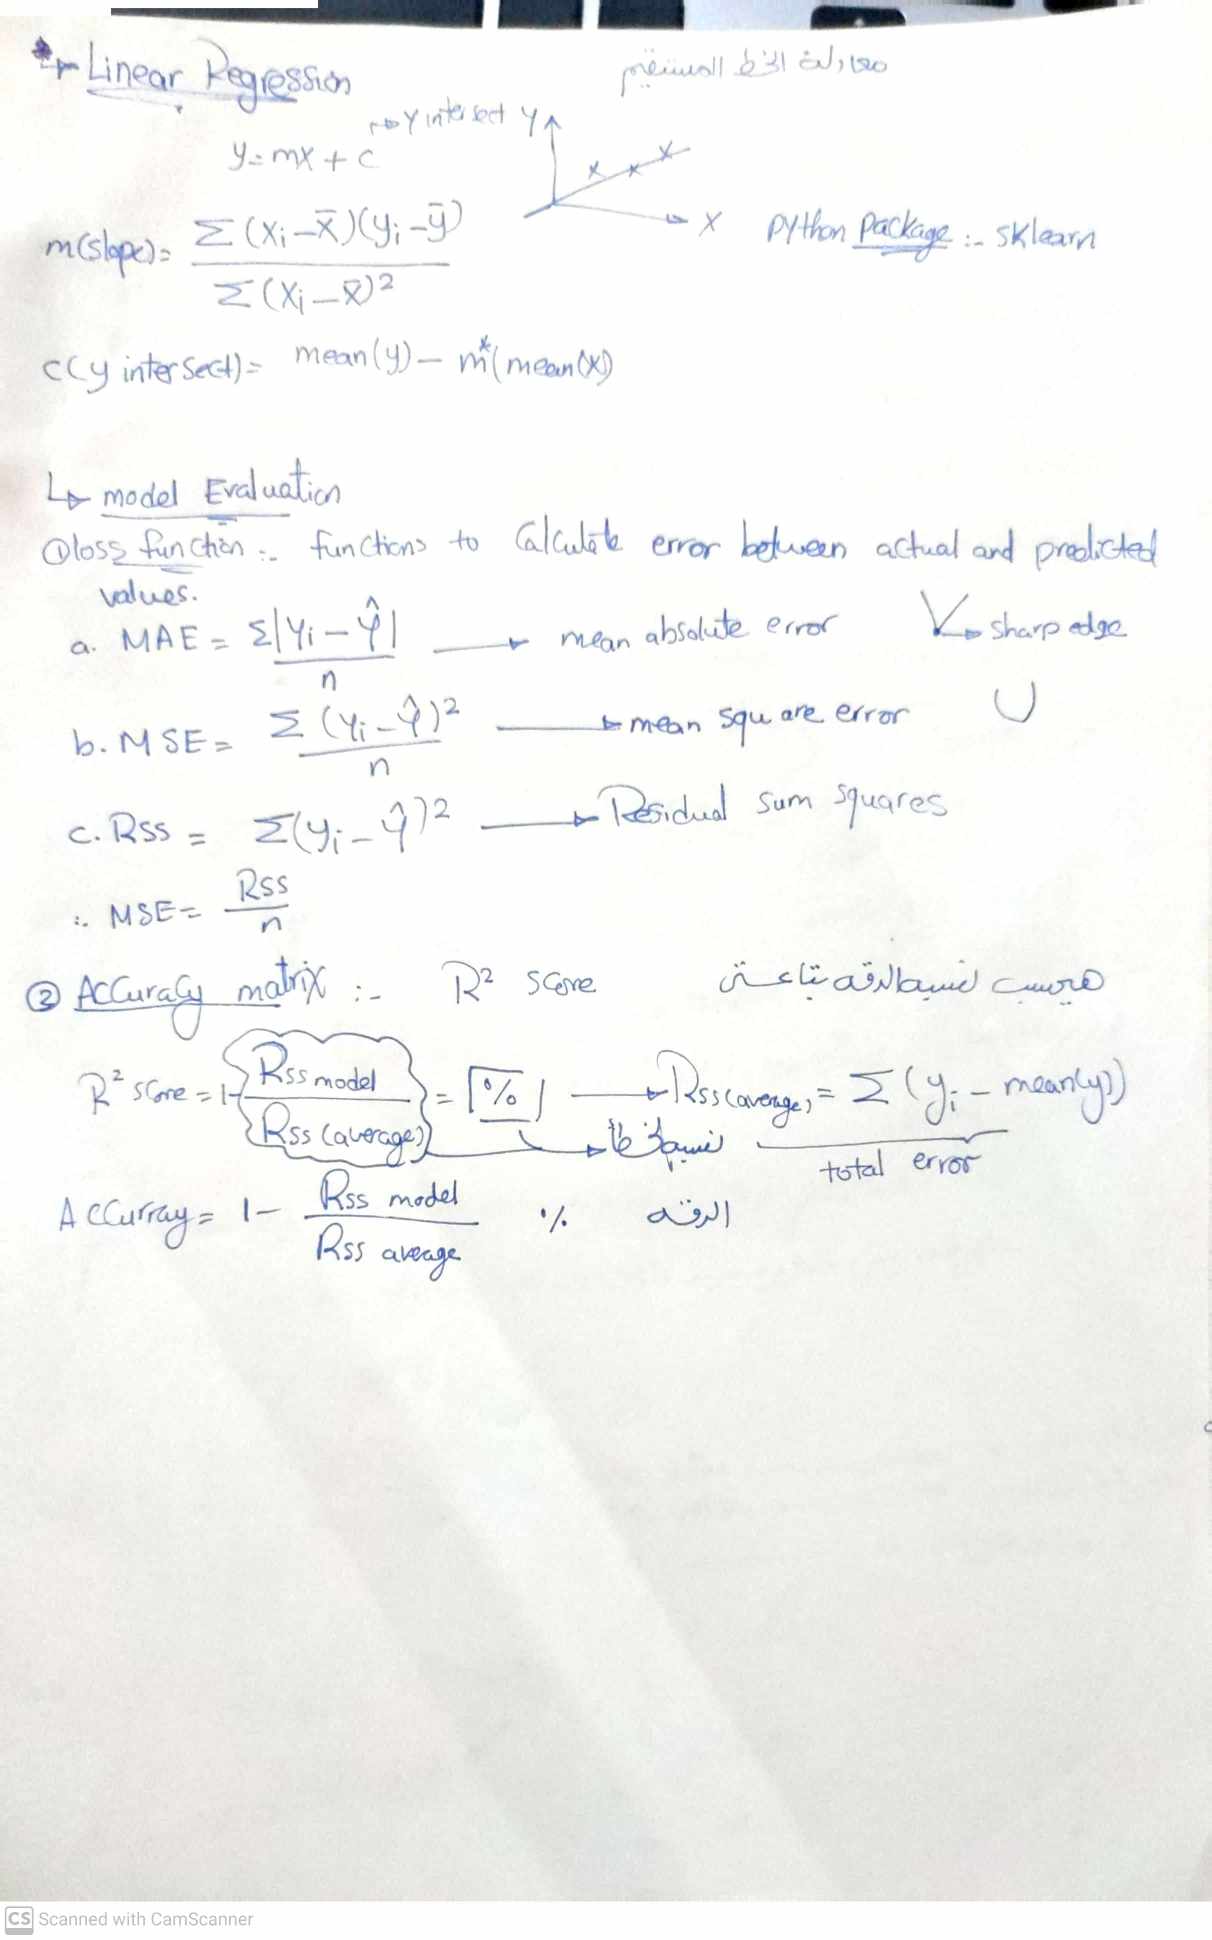 Linear Regression
معادلة الخط المستقيم
y = mx + c → Y intersect
Y
X
Python Package :- sklearn
m(slope) = Σ(xi - x̄)(yi - ȳ) / Σ(xi - x̄)²
c(y intersect) = mean(y) - m*(mean(x))
↳ model Evaluation
① loss function :- functions to Calculate error between actual and predicted
values.
a. MAE = Σ|yi - ŷ| / n → mean absolute error → sharp edge
b. MSE = Σ(yi - ŷ)² / n → mean square error
c. Rss = Σ(yi - ŷ)² → Residual sum squares
∴ MSE = Rss / n
② Accuracy matrix :- R² score
هيحسب نسبة الدقه بتاعتى
R² score = 1 - Rss model / Rss (average) = % → Rss (average) = Σ(yi - mean(y))
نسبة الخطا
total error
Accurray = 1 - Rss model / Rss average % الدقه
CS Scanned with CamScanner